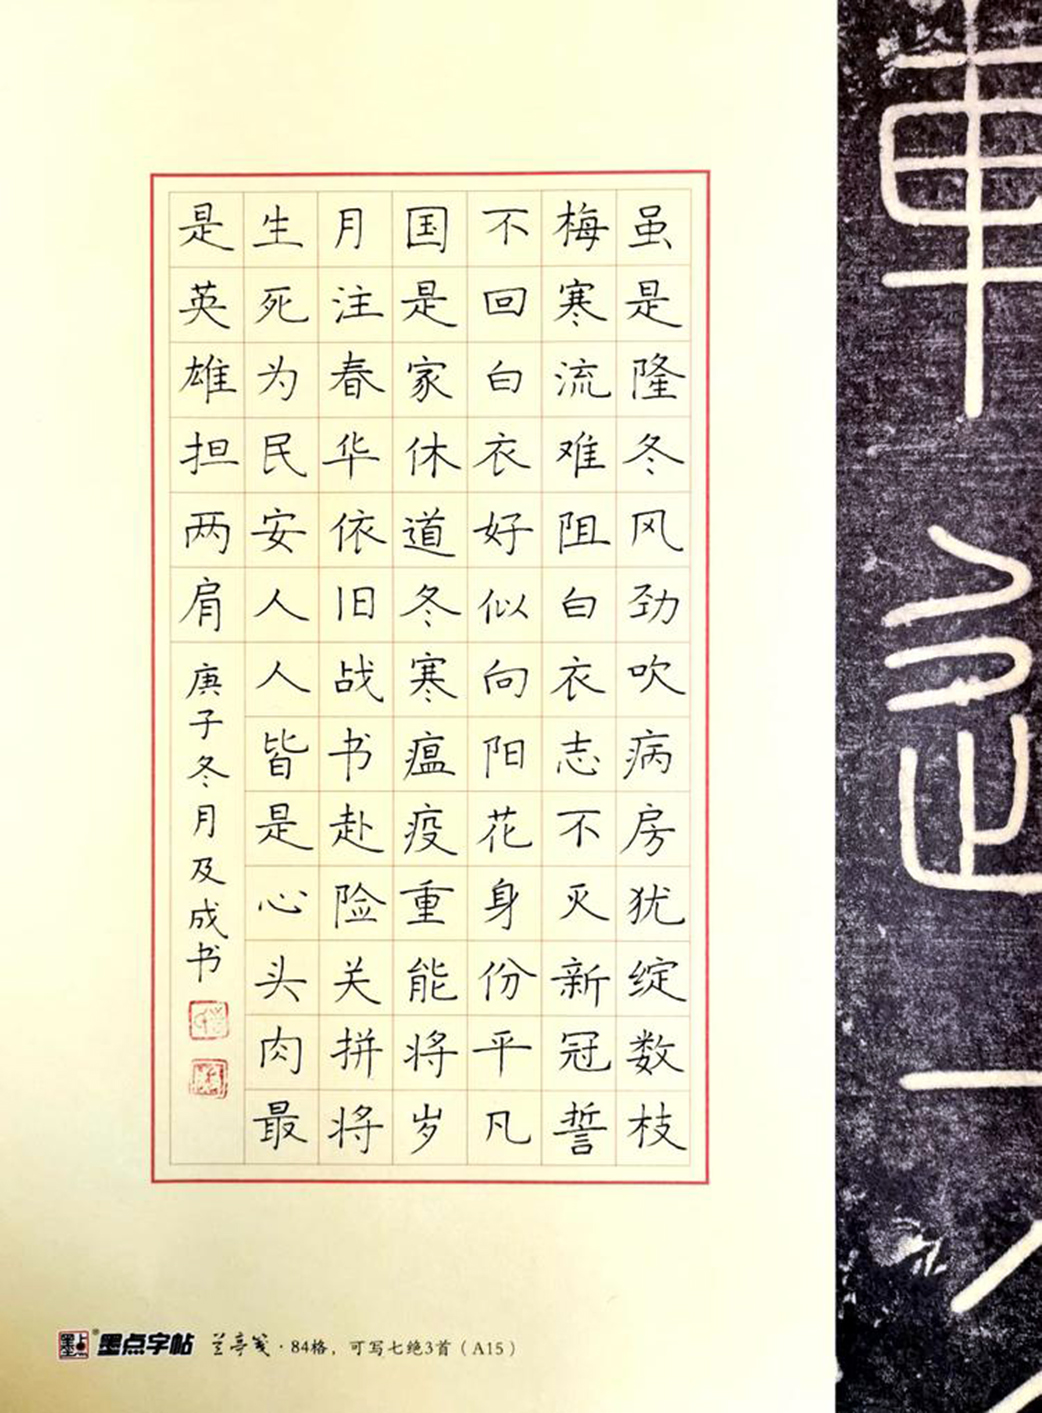 虽是隆冬风劲吹病房犹绽数枝
梅寒流难阻白衣志不灭新冠誓
不回白衣好似向阳花身份平凡
国是家休道冬寒瘟疫重能将岁
月注春华依旧战书赴险关拼将
生死为民安人人皆是心头肉最
是英雄担两肩
庚子冬月及成书
墨点字帖 兰亭笺·84格，可写七绝3首（A15）